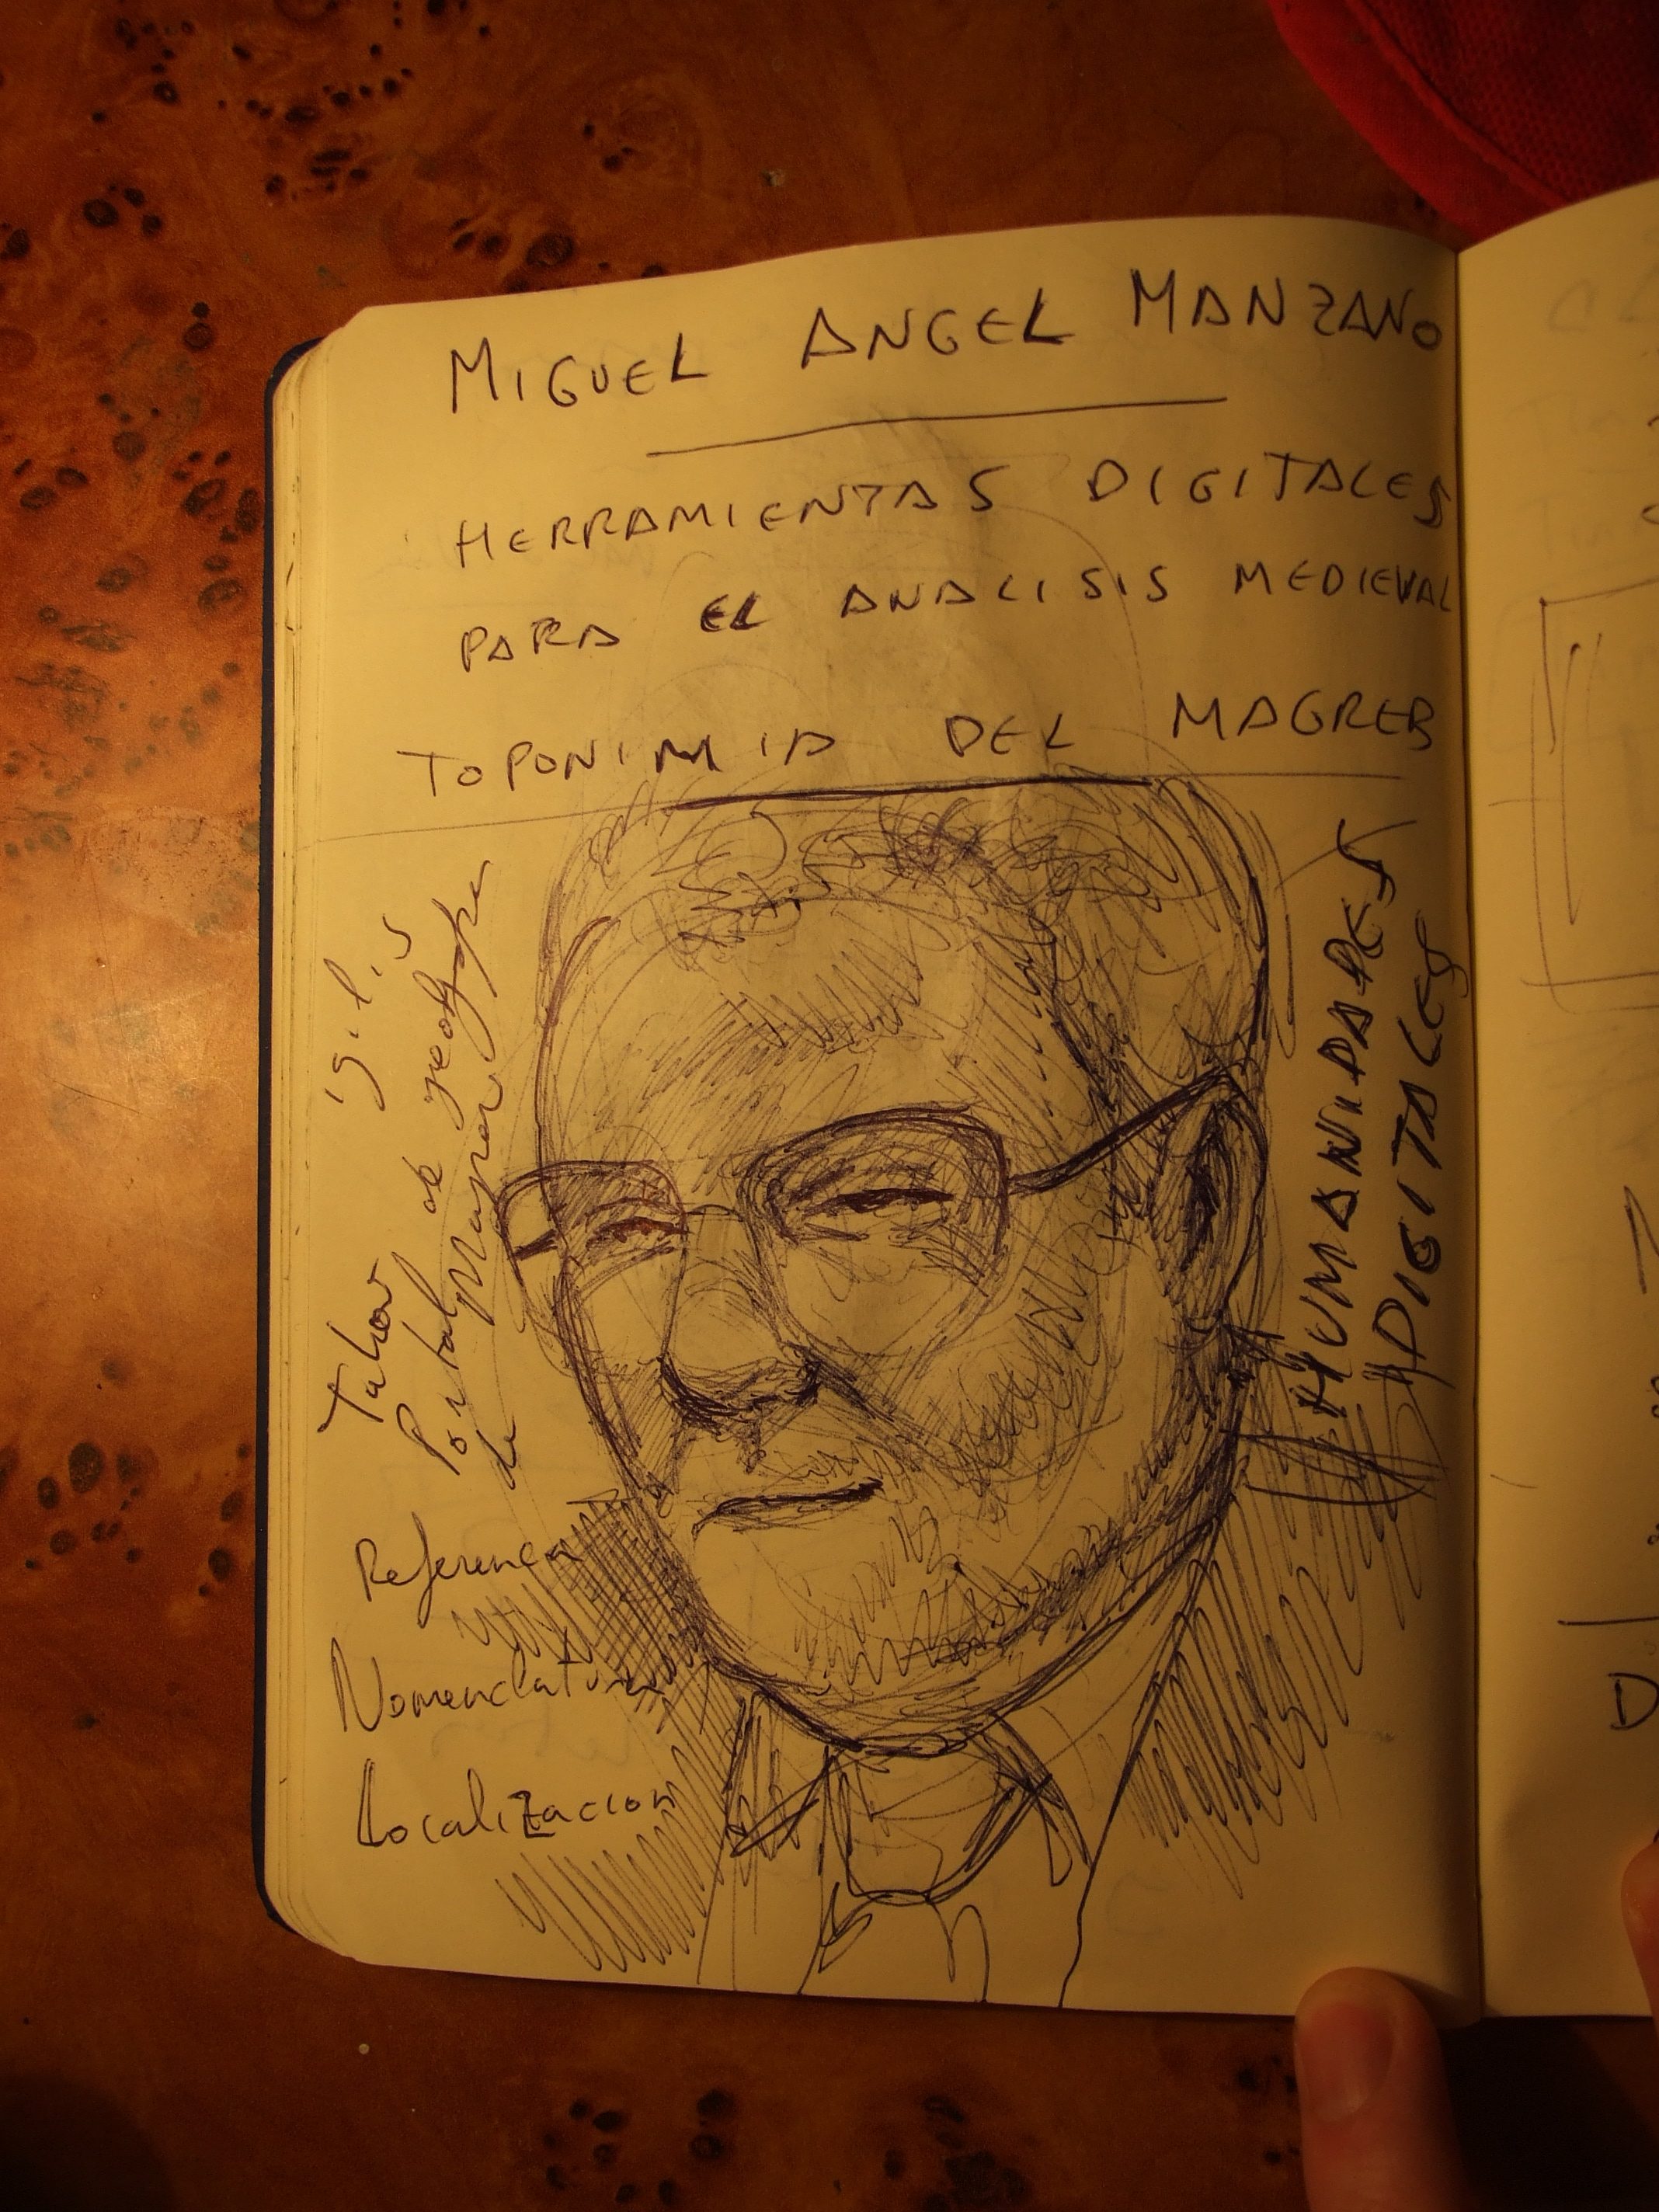 MIGUEL ANGEL MANZANO
HERRAMIENTAS DIGITALES
PARA EL ANALISIS MEDIEVAL
TOPONIMIA DEL MAGREB
HUMANIDADES
DIGITALES
Portal de
de Magreb
Referencia
Nomenclatura
Localización
D